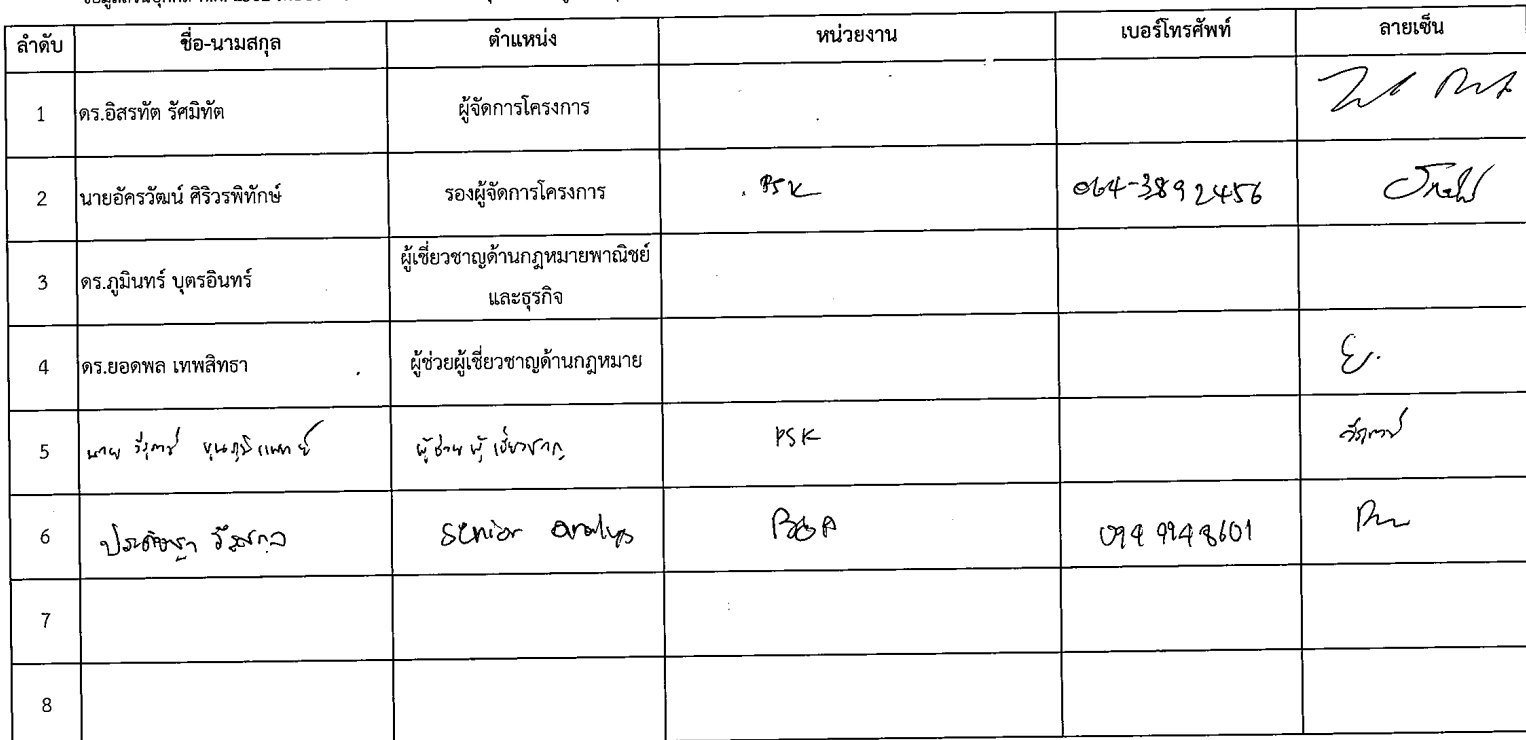 ลำดับ ชื่อ-นามสกุล ตำแหน่ง หน่วยงาน เบอร์โทรศัพท์ ลายเซ็น
1 ดร.อิสรทัต รัศมิทัต ผู้จัดการโครงการ
2 นายอัครวัฒน์ ศิริวรพิทักษ์ รองผู้จัดการโครงการ PSK 064-3892456
3 ดร.ภูมินทร์ บุตรอินทร์ ผู้เชี่ยวชาญด้านกฎหมายพาณิชย์
และธุรกิจ
4 ดร.ยอดพล เทพสิทธา ผู้ช่วยผู้เชี่ยวชาญด้านกฎหมาย
5 นาย ผู้ช่วยผู้เชี่ยวชาญ PSK
6 Senior
7
8